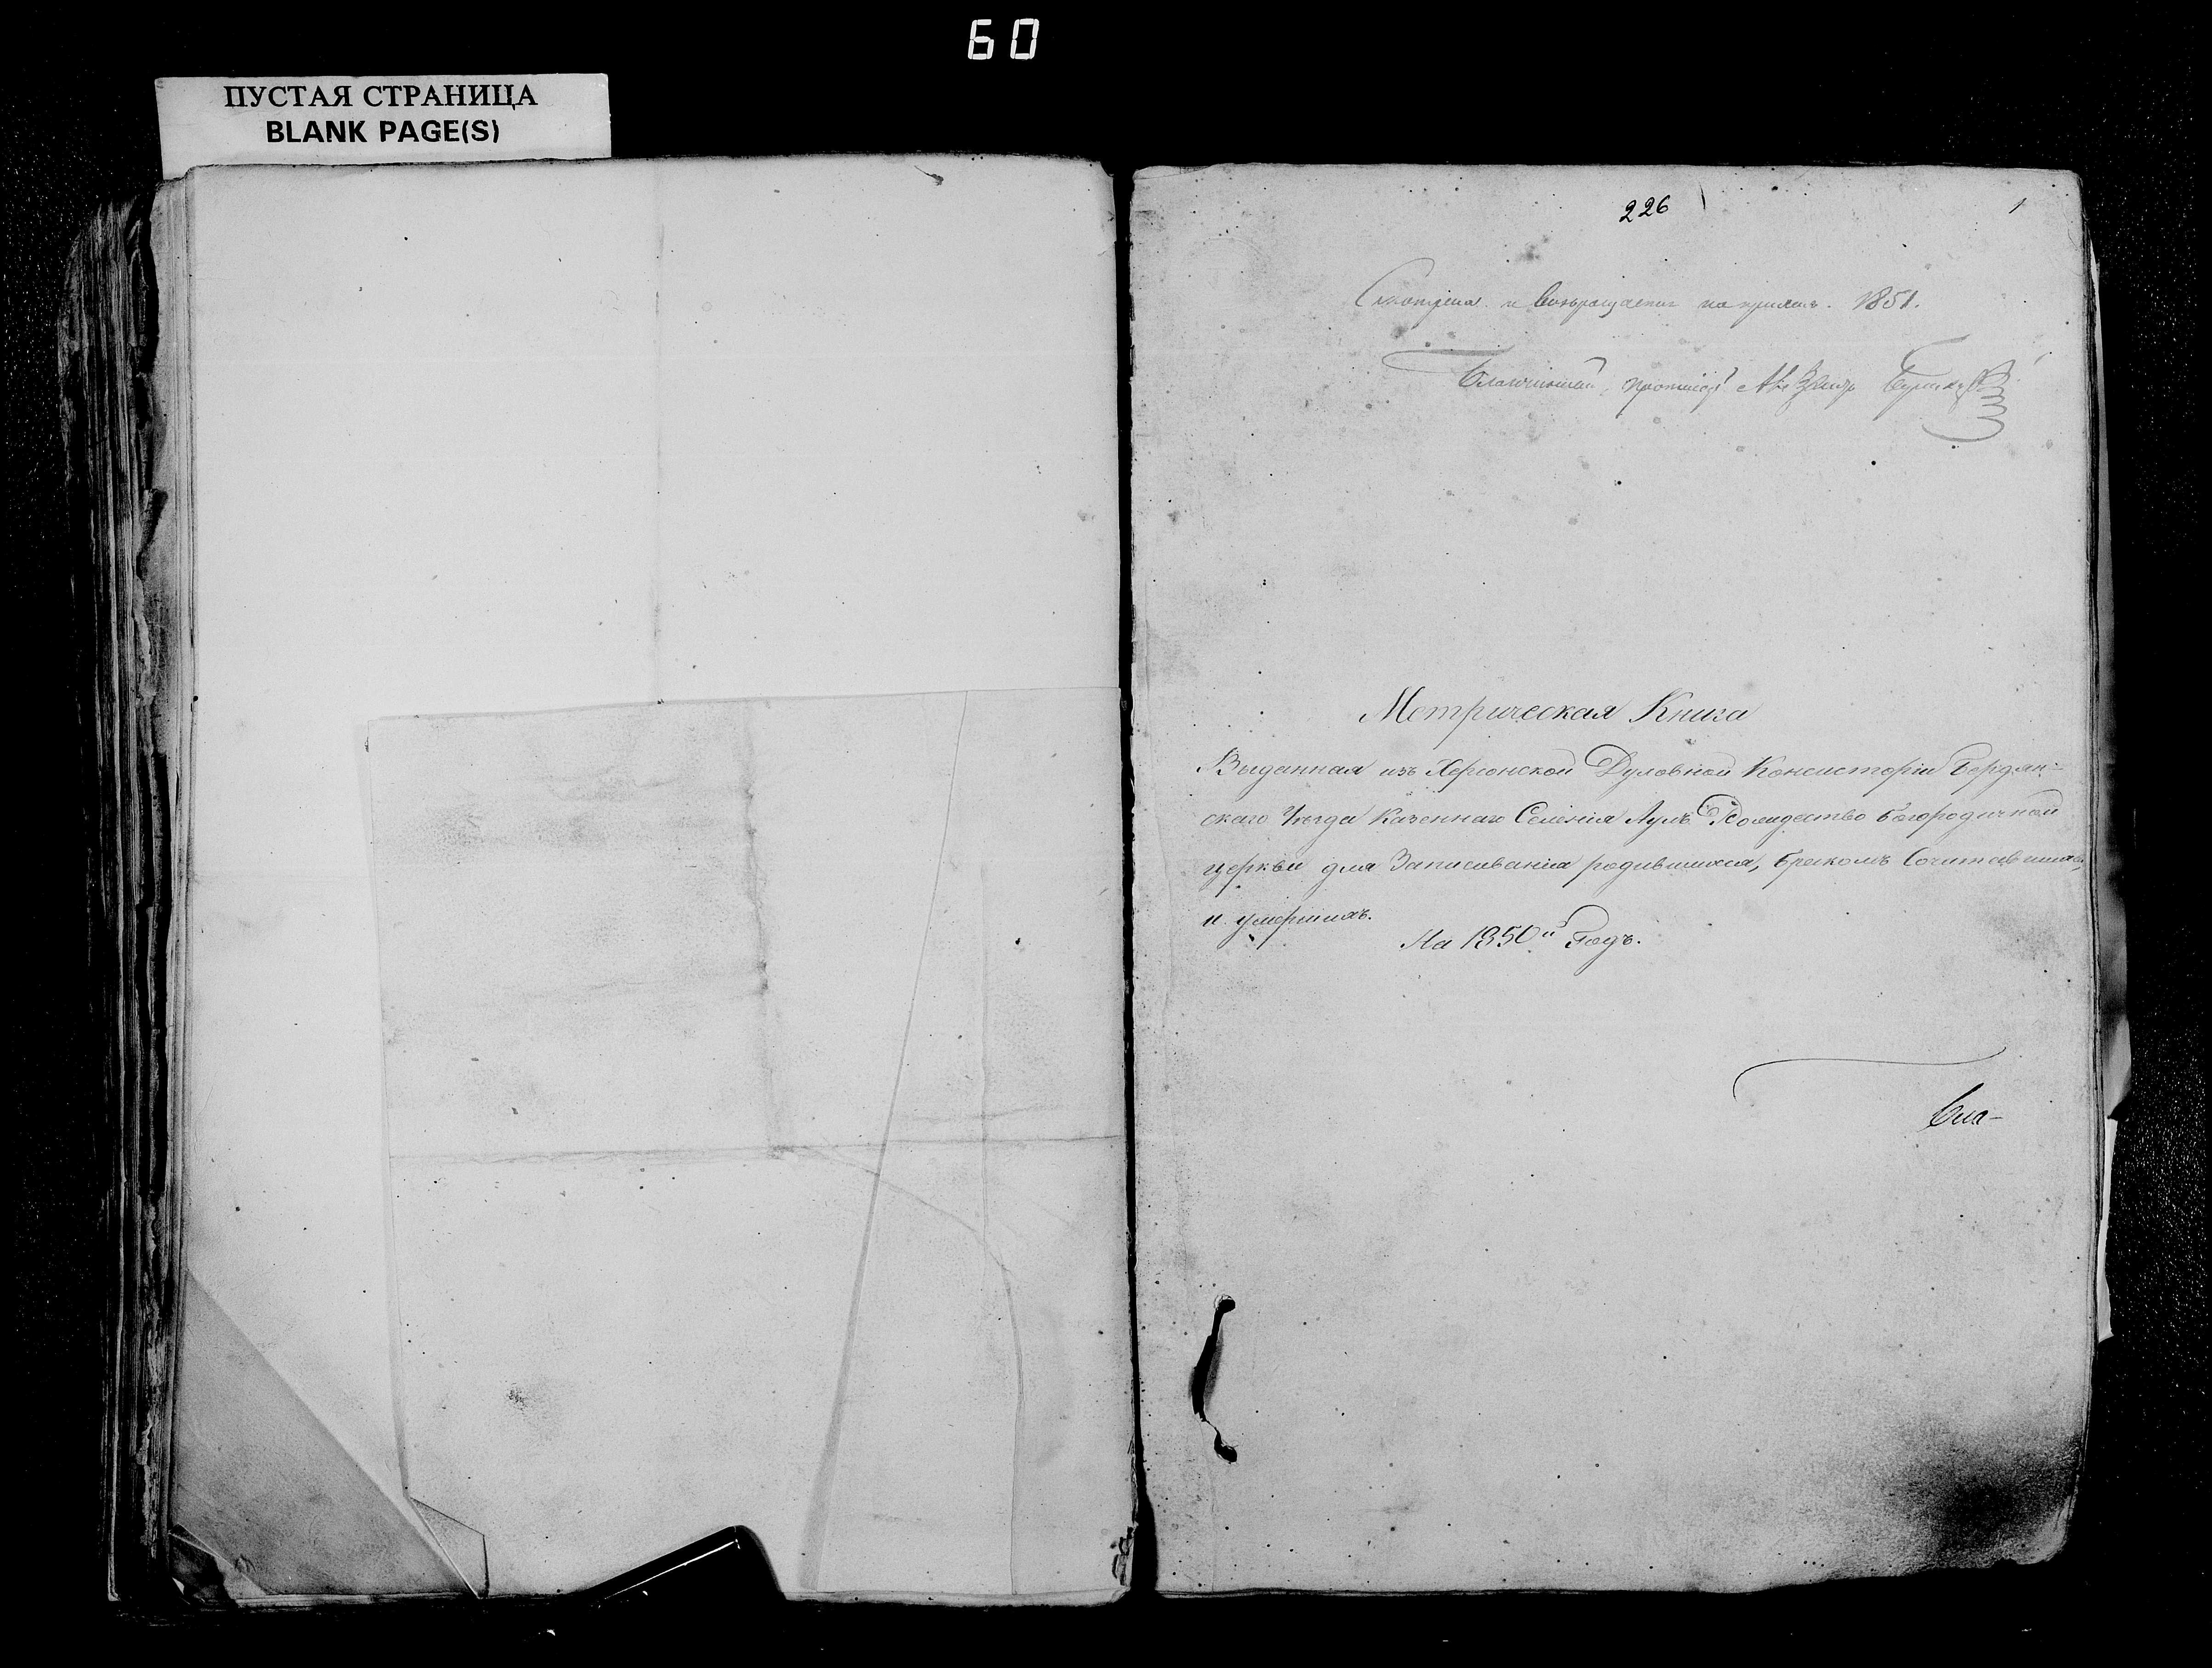 60
ПУСТАЯ СТРАНИЦА
BLANK PAGE(S)
226
1
и возвращается 1851.
Благочинный, протоіер.
Метрическая Книга
Выданная изъ Херсонской Духовной Консисторіи Бердян-
скаго Уѣзда Казеннаго Селенія Аулъ Рождество Богородичной
церкви для Записыванія родившихся, бракомъ Сочитавшихся,
и умершихъ.
На 1850й Годъ.
Бла-